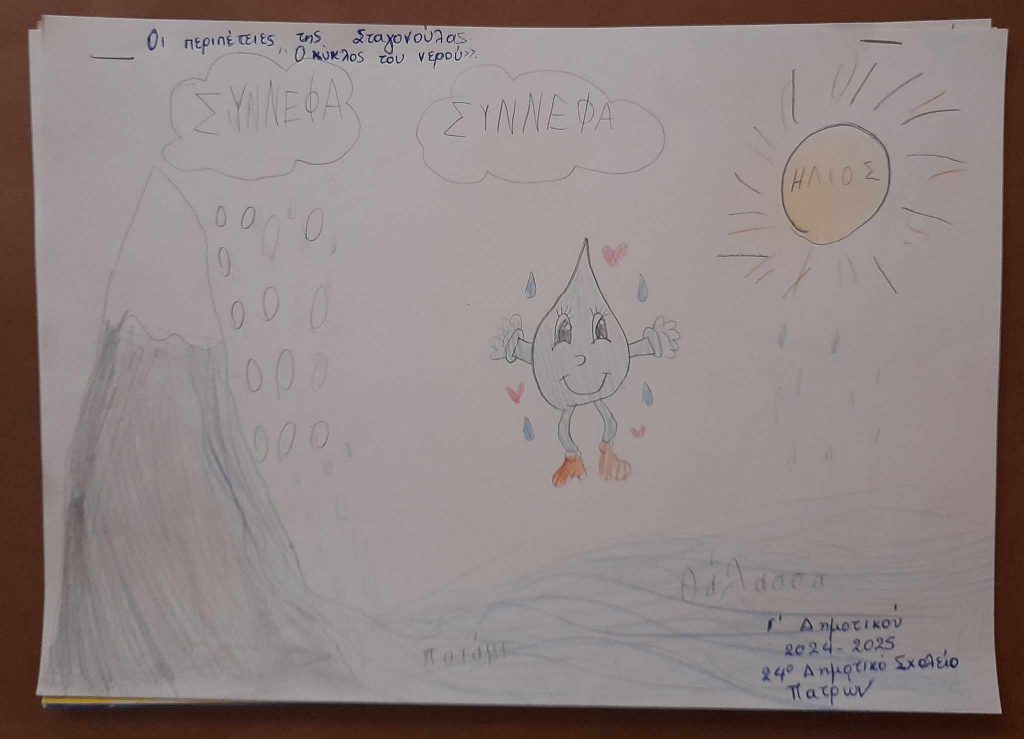 Οι περιπέτειες της Σταγονούλας.
,, Ο κύκλος του νερού>>.
ΣΥΝΝΕΦΑ
ΣΥΝΝΕΦΑ
ΗΛΙΟΣ
Θάλασσα
Ποτάμι
Γ' Δημοτικού
2024-2025
24º Δημοτικό Σχολείο
Πατρων